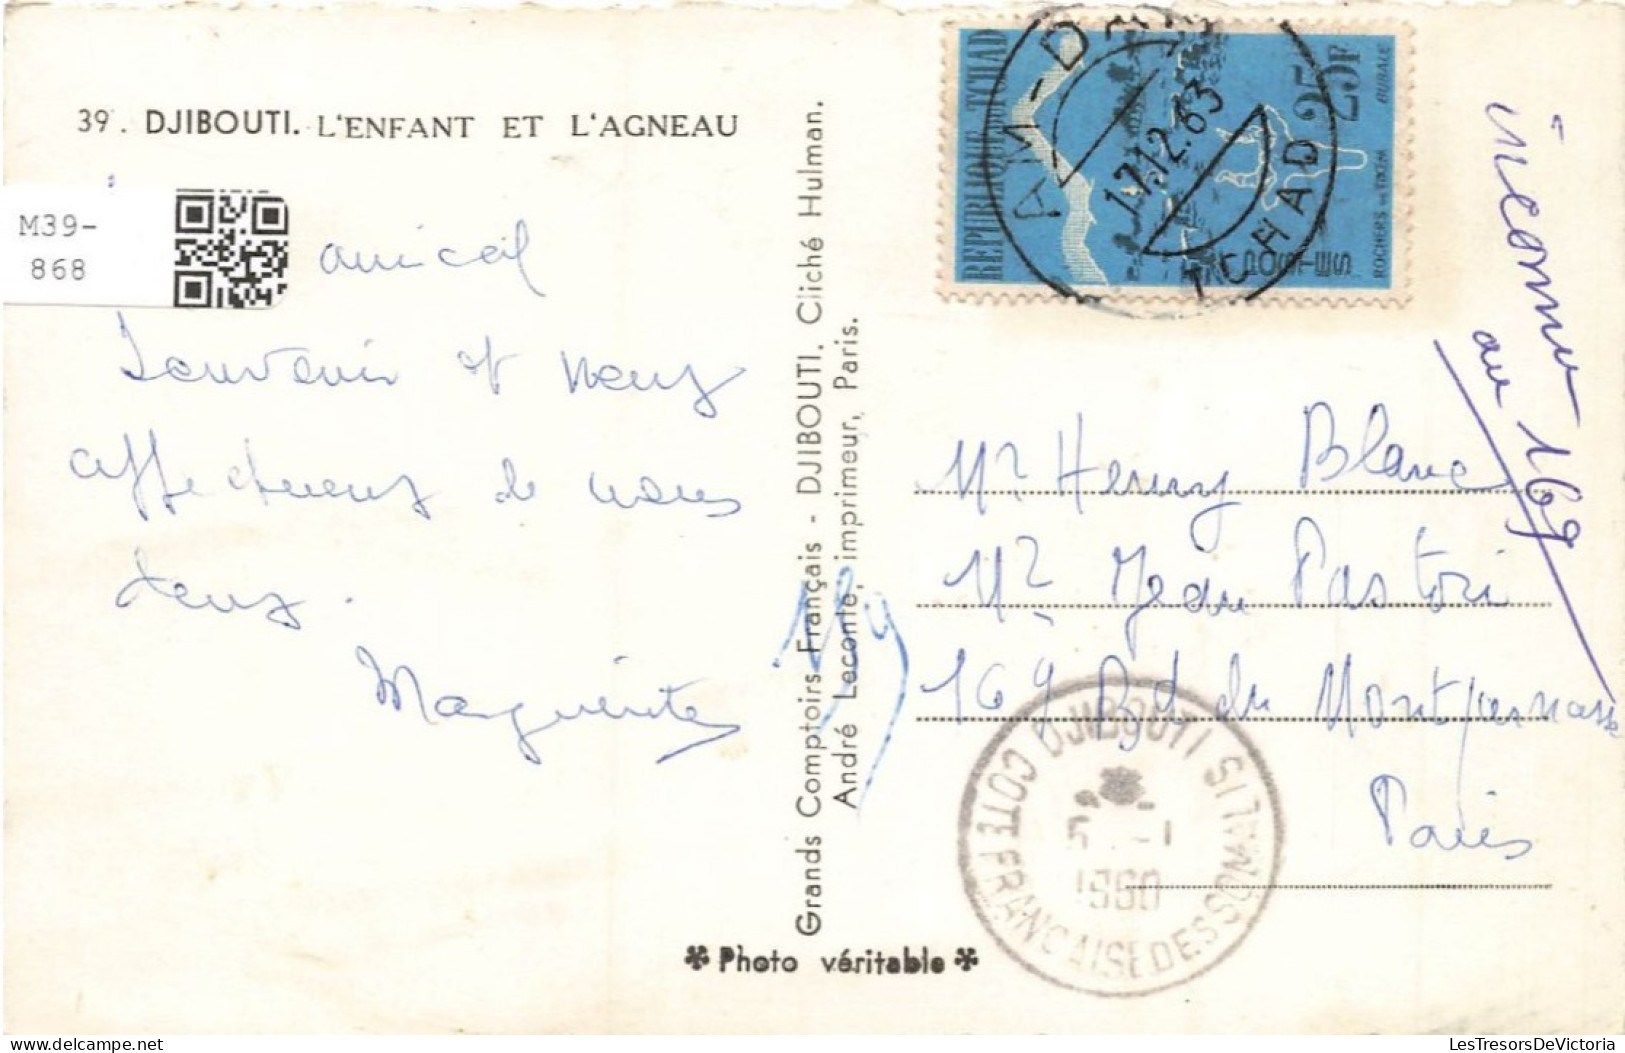 39. DJIBOUTI. L'ENFANT ET L'AGNEAU
M39-
868
amical
Souvenir et voeux
affectueux de nous
deux.
Marguerite
Grands Comptoirs Français - DJIBOUTI. Cliché Hulman.
André Leconte, imprimeur, Paris.
✻ Photo véritable ✻
REPUBLIQUE DU TCHAD
25F
POSTES
ROCHERS DE TIBEM BUBALE
17.12.63
TCHAD
inconnu
au 169
Mr Henry Blanc
Mr Jean Pastori
169 Bd du Montparnasse
Paris
DJIBOUTI
COTE FRANCAISE DES SOMALIS
1960
LesTresorsDeVictoria